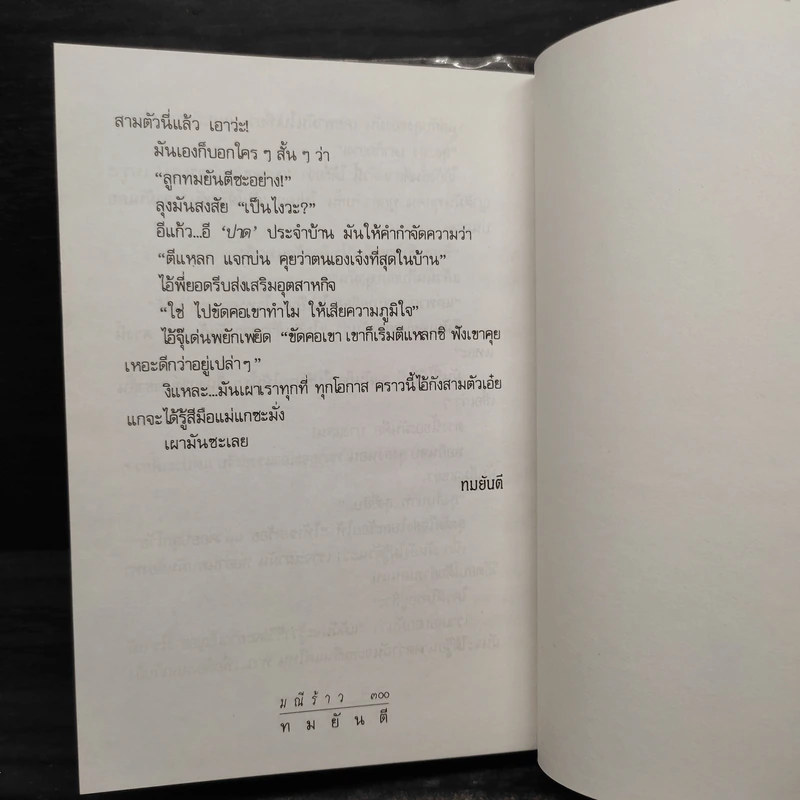 สามตัวนี่แล้ว เอาว่ะ!
มันเองก็บอกใคร ๆ สั้น ๆ ว่า
“ลูกทมยันตีซะอย่าง!”
ลุงมันสงสัย “เป็นไงวะ?”
อีแก้ว...อี ‘ปาด’ ประจำบ้าน มันให้คำกำจัดความว่า
“ตีแหลก แจกบ่น คุยว่าตนเองเจ๋งที่สุดในบ้าน”
ไอ้พี่ยอดรีบส่งเสริมอุตสาหกิจ
“ใช่ ไปขัดคอเขาทำไม ให้เสียความภูมิใจ”
ไอ้จุ๊เด่นพยักเพยิด “ขัดคอเขา เขาก็เริ่มตีแหลกซิ ฟังเขาคุย
เหอะดีกว่าอยู่เปล่าๆ”
งิแหละ...มันเผาเราทุกที่ ทุกโอกาส คราวนี้ไอ้กังสามตัวเอ๋ย
แกจะได้รู้สีมือแม่แกซะมั่ง
เผามันซะเลย
ทมยันตี
มณีร้าว ๓๐๐
ทมยันตี